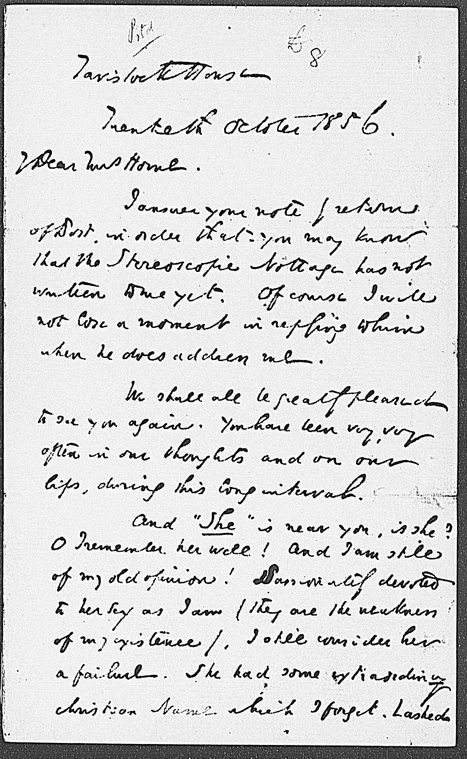 Tavistock House
Twentieth October 1856.
My Dear Mrs Horne.
I answer your note by return
of Post, in order that you may know
that the Stereoscopic Nottage has not
written to me yet. Of course I will
not lose a moment in replying to him
when he does address me.
We shall all be greatly pleased
to see you again. You have been very, very
often in our thoughts and on our
lips, during this long interval.
And "She" is near you, is she?
O I remember her well! And I am still
of my old opinion! Passionately devoted
to her sex as I am (they are the weakness
of my existence), I still consider her
a failure. She had some extraordinary
christian name which I forget. Lashed